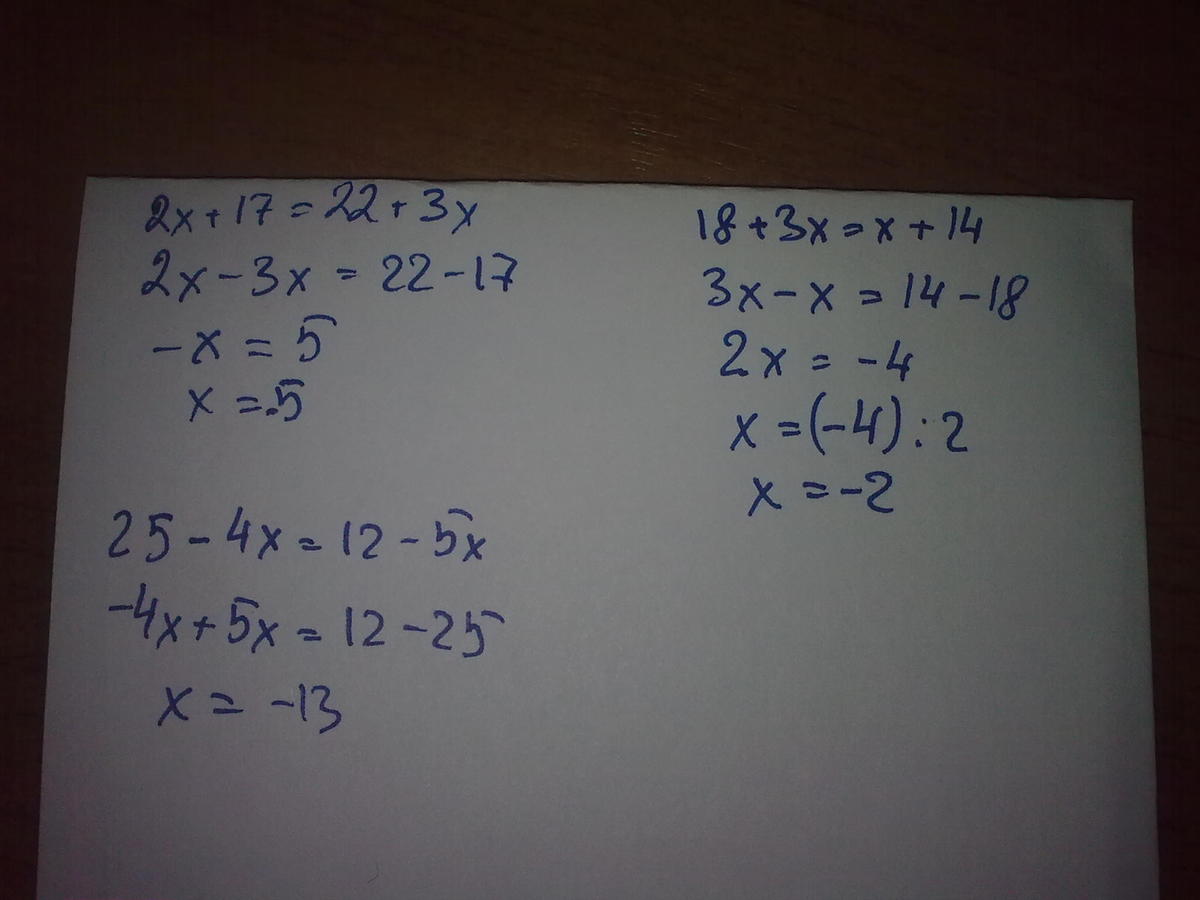 2x+17=22+3x
2x-3x=22-17
-x=5
x=-5
18+3x=x+14
3x-x=14-18
2x=-4
x=(-4):2
x=-2
25-4x=12-5x
-4x+5x=12-25
x=-13